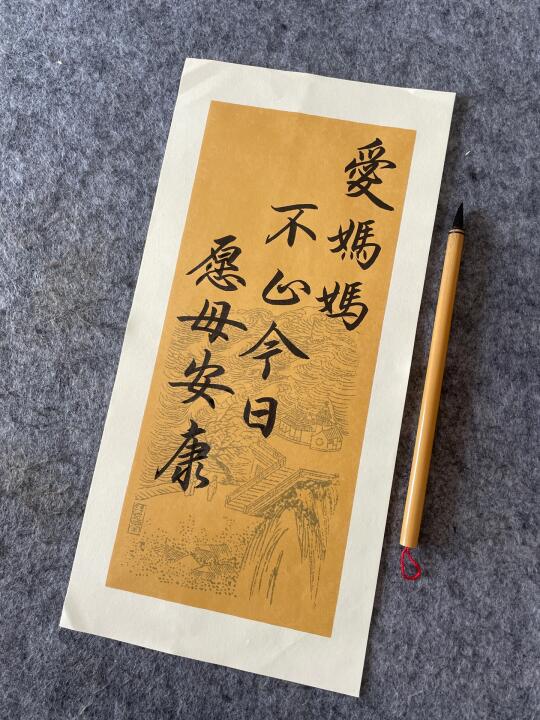 愛媽媽
不止今日
愿母安康